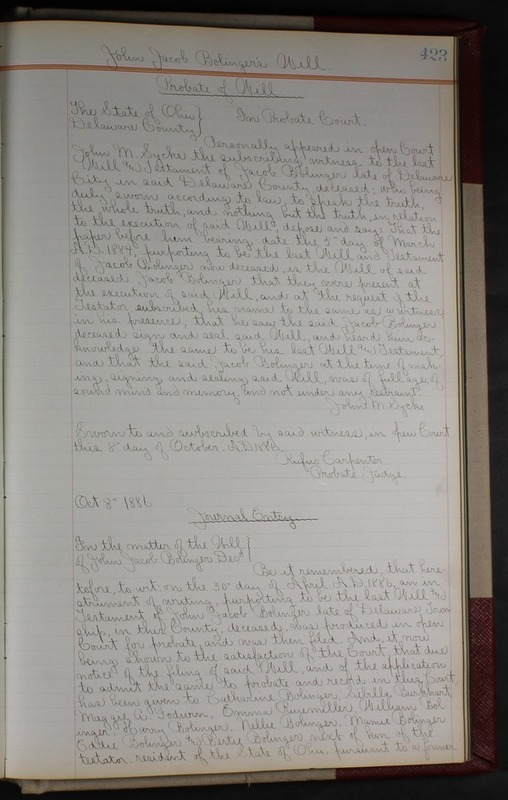 423
John Jacob Bolinger's Will.
Probate of Will
The State of Ohio } In Probate Court.
Delaware County }
Personally appeared in open Court
John M. Syckes the subscribing witness to the last
Will & Testament of Jacob Bolinger late of Delaware
City in said Delaware County, deceased; who being
duly sworn according to law, to speak the truth,
the whole truth, and nothing but the truth, in relation
to the execution of said Will, depose and say: That the
paper before him bearing date the 5" day of March
A.D. 1884, purporting to be the last Will and Testament
of Jacob Bolinger now deceased, is the Will of said
deceased Jacob Bolinger that they were present at
the execution of said Will, and at the request of the
Testator subscribed his name to the same as a witness
in his presence; that he saw the said Jacob Bolinger
deceased sign and seal said Will, and heard him ac-
knowledge the same to be his last Will & Testament,
and that the said Jacob Bolinger at the time of mak-
ing, signing and sealing said Will, was of full age, of
sound mind and memory, and not under any restraint.
John M. Syckes
Sworn to and subscribed by said witness, in open Court
this 8" day of October A.D. 1886
Rufus Carpenter
Probate Judge
Oct 8" 1886
Journal Entry
In the matter of the Will }
of John Jacob Bolinger Dec'd }
Be it remembered, that here
tofore, to wit: on the 30" day of April A.D. 1886, an in
strument of writing, purporting to be the last Will &
Testament of John Jacob Bolinger late of Delaware Town
ship, in this County, deceased, was produced in open
Court for probate, and was then filed. And, it now
being shown to the satisfaction of the Court, that due
notice of the filing of said Will, and of the application
to admit the same to probate and record in this Court
has been given to Catharine Bolinger, Burkhart
Maggie A. Emma William Bol
inger, Harry Bolinger, Nellie Bolinger, Mamie Bolinger
Eddie Bolinger & Bertie Bolinger next of kin of the
testator, resident of the State of Ohio, pursuant to a former